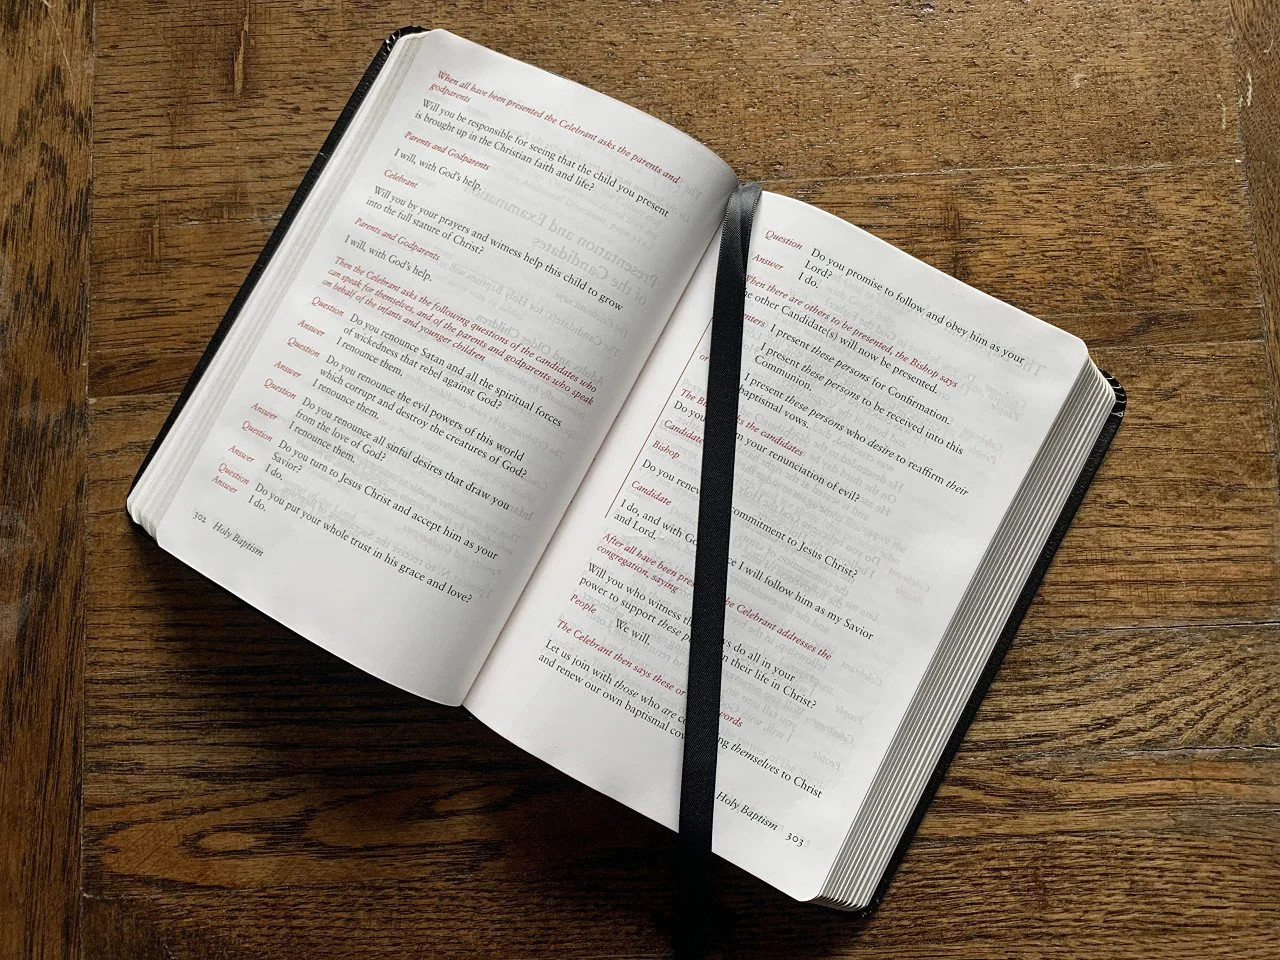 When all have been presented the Celebrant asks the parents and
godparents
Will you be responsible for seeing that the child you present
is brought up in the Christian faith and life?
Parents and Godparents
I will, with God's help.
Celebrant
Will you by your prayers and witness help this child to grow
into the full stature of Christ?
Parents and Godparents
I will, with God's help.
Then the Celebrant asks the following questions of the candidates who
can speak for themselves, and of the parents and godparents who speak
on behalf of the infants and younger children.
Question Do you renounce Satan and all the spiritual forces
of wickedness that rebel against God?
Answer I renounce them.
Question Do you renounce the evil powers of this world
which corrupt and destroy the creatures of God?
Answer I renounce them.
Question Do you renounce all sinful desires that draw you
from the love of God?
Answer I renounce them.
Question Do you turn to Jesus Christ and accept him as your
Savior?
Answer I do.
Question Do you put your whole trust in his grace and love?
Answer I do.
302 Holy Baptism
Question Do you promise to follow and obey him as your
Lord?
Answer I do.
When there are others to be presented, the Bishop says
other Candidate(s) will now be presented.
I present these persons for Confirmation.
I present these persons to be received into this
Communion.
I present these persons who desire to reaffirm their
baptismal vows.
The the candidates
Do you your renunciation of evil?
Candidate
Bishop
Do you renew commitment to Jesus Christ?
Candidate
I do, and with I will follow him as my Savior
and Lord.
After all have been the Celebrant addresses the
congregation, saying
Will you who witness do all in your
power to support these in their life in Christ?
People We will.
The Celebrant then says these or words
Let us join with those who are themselves to Christ
and renew our own baptismal
Holy Baptism 303